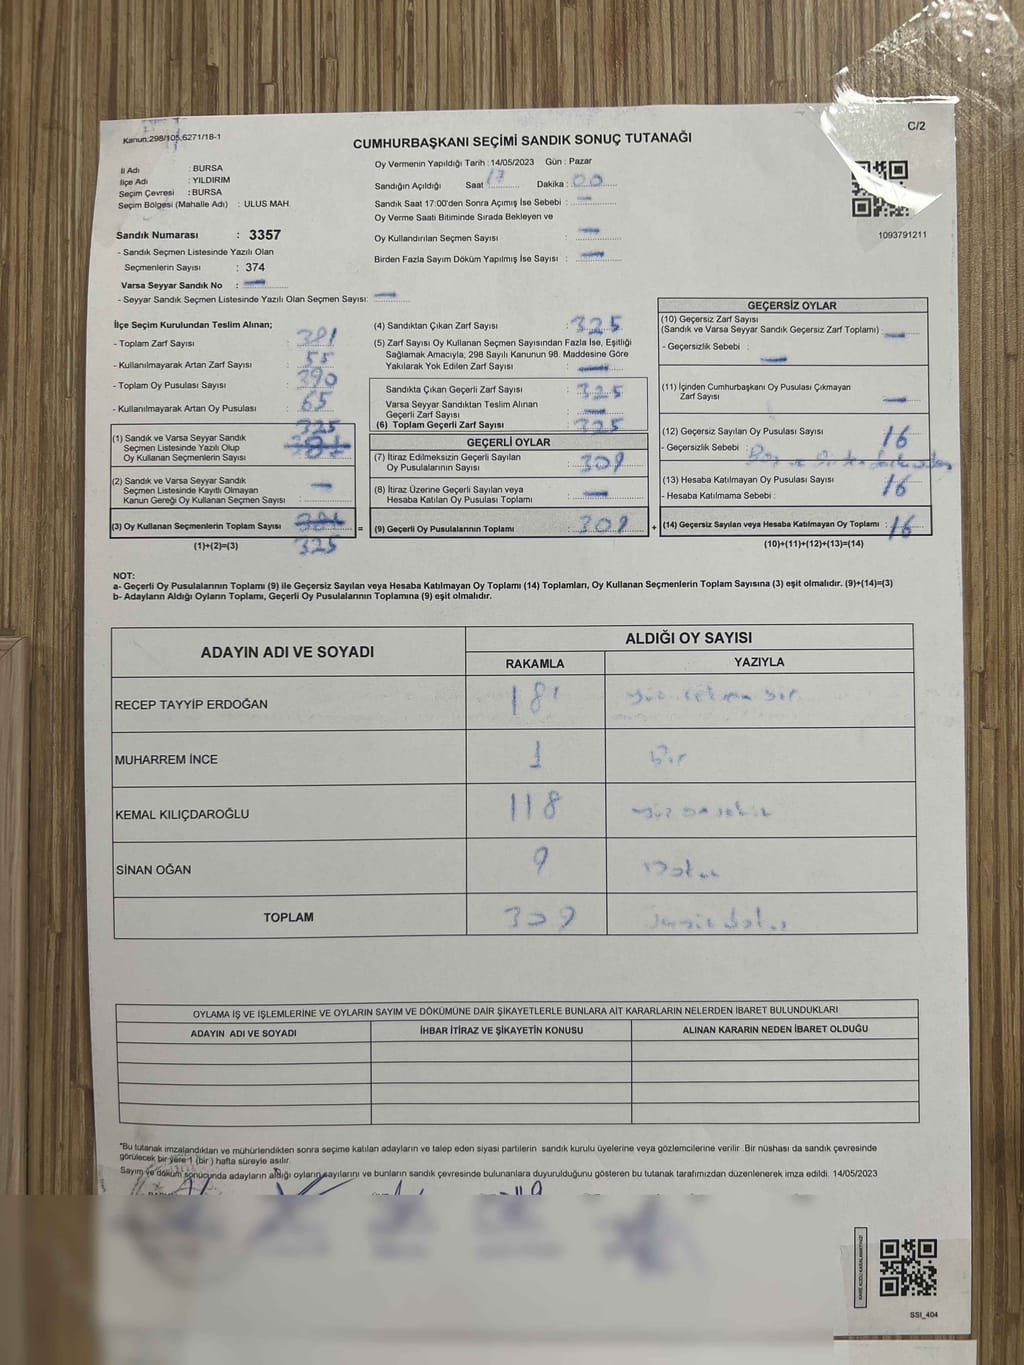 Kanun:298/105,6271/18-1
C/2
CUMHURBAŞKANI SEÇİMİ SANDIK SONUÇ TUTANAĞI
İl Adı : BURSA
İlçe Adı : YILDIRIM
Seçim Çevresi : BURSA
Seçim Bölgesi (Mahalle Adı) : ULUS MAH.
Oy Vermenin Yapıldığı Tarih : 14/05/2023 Gün : Pazar
Sandığın Açıldığı Saat 17 Dakika : 00
Sandık Saat 17:00'den Sonra Açımış İse Sebebi : —
Oy Verme Saati Bitiminde Sırada Bekleyen ve
Oy Kullandırılan Seçmen Sayısı : —
Birden Fazla Sayım Döküm Yapılmış İse Sayısı : —
1093791211
Sandık Numarası : 3357
- Sandık Seçmen Listesinde Yazılı Olan
Seçmenlerin Sayısı : 374
Varsa Seyyar Sandık No : —
- Seyyar Sandık Seçmen Listesinde Yazılı Olan Seçmen Sayısı: —
İlçe Seçim Kurulundan Teslim Alınan;
- Toplam Zarf Sayısı : 381
- Kullanılmayarak Artan Zarf Sayısı : 55
- Toplam Oy Pusulası Sayısı : 390
- Kullanılmayarak Artan Oy Pusulası : 65
325
(1) Sandık ve Varsa Seyyar Sandık
Seçmen Listesinde Yazılı Olup
Oy Kullanan Seçmenlerin Sayısı
(2) Sandık ve Varsa Seyyar Sandık
Seçmen Listesinde Kayıtlı Olmayan
Kanun Gereği Oy Kullanan Seçmen Sayısı : —
(3) Oy Kullanan Seçmenlerin Toplam Sayısı
325
(1)+(2)=(3)
=
(4) Sandıktan Çıkan Zarf Sayısı : 325
(5) Zarf Sayısı Oy Kullanan Seçmen Sayısından Fazla İse, Eşitliği
Sağlamak Amacıyla, 298 Sayılı Kanunun 98. Maddesine Göre
Yakılarak Yok Edilen Zarf Sayısı : —
Sandıkta Çıkan Geçerli Zarf Sayısı : 325
Varsa Seyyar Sandıktan Teslim Alınan
Geçerli Zarf Sayısı : —
(6) Toplam Geçerli Zarf Sayısı : 325
GEÇERLİ OYLAR
(7) İtiraz Edilmeksizin Geçerli Sayılan
Oy Pusulalarının Sayısı : 309
(8) İtiraz Üzerine Geçerli Sayılan veya
Hesaba Katılan Oy Pusulası Toplamı : —
(9) Geçerli Oy Pusulalarının Toplamı : 309
+
GEÇERSİZ OYLAR
(10) Geçersiz Zarf Sayısı
(Sandık ve Varsa Seyyar Sandık Geçersiz Zarf Toplamı) : —
- Geçersizlik Sebebi : —
(11) İçinden Cumhurbaşkanı Oy Pusulası Çıkmayan
Zarf Sayısı : —
(12) Geçersiz Sayılan Oy Pusulası Sayısı : 16
- Geçersizlik Sebebi :
(13) Hesaba Katılmayan Oy Pusulası Sayısı : 16
- Hesaba Katılmama Sebebi :
(14) Geçersiz Sayılan veya Hesaba Katılmayan Oy Toplamı : 16
(10)+(11)+(12)+(13)=(14)
NOT:
a- Geçerli Oy Pusulalarının Toplamı (9) ile Geçersiz Sayılan veya Hesaba Katılmayan Oy Toplamı (14) Toplamları, Oy Kullanan Seçmenlerin Toplam Sayısına (3) eşit olmalıdır. (9)+(14)=(3)
b- Adayların Aldığı Oyların Toplamı, Geçerli Oy Pusulalarının Toplamına (9) eşit olmalıdır.
ADAYIN ADI VE SOYADI
ALDIĞI OY SAYISI
RAKAMLA YAZIYLA
RECEP TAYYİP ERDOĞAN 181 yüz seksen bir
MUHARREM İNCE 1 bir
KEMAL KILIÇDAROĞLU 118 yüz on sekiz
SİNAN OĞAN 9 Dokuz
TOPLAM 309
OYLAMA İŞ VE İŞLEMLERİNE VE OYLARIN SAYIM VE DÖKÜMÜNE DAİR ŞİKAYETLERLE BUNLARA AİT KARARLARIN NELERDEN İBARET BULUNDUKLARI
ADAYIN ADI VE SOYADI İHBAR İTİRAZ VE ŞİKAYETİN KONUSU ALINAN KARARIN NEDEN İBARET OLDUĞU
"Bu tutanak imzalandıktan ve mühürlendikten sonra seçime katılan adayların ve talep eden siyasi partilerin sandık kurulu üyelerine veya gözlemcilerine verilir. Bir nüshası da sandık çevresinde
görülecek bir yere 1 (bir ) hafta süreyle asılır.
Sayım ve döküm sonucunda adayların aldığı oyların sayılarını ve bunların sandık çevresinde bulunanlara duyurulduğunu gösteren bu tutanak tarafımızdan düzenlenerek imza edildi. 14/05/2023
SSI_404